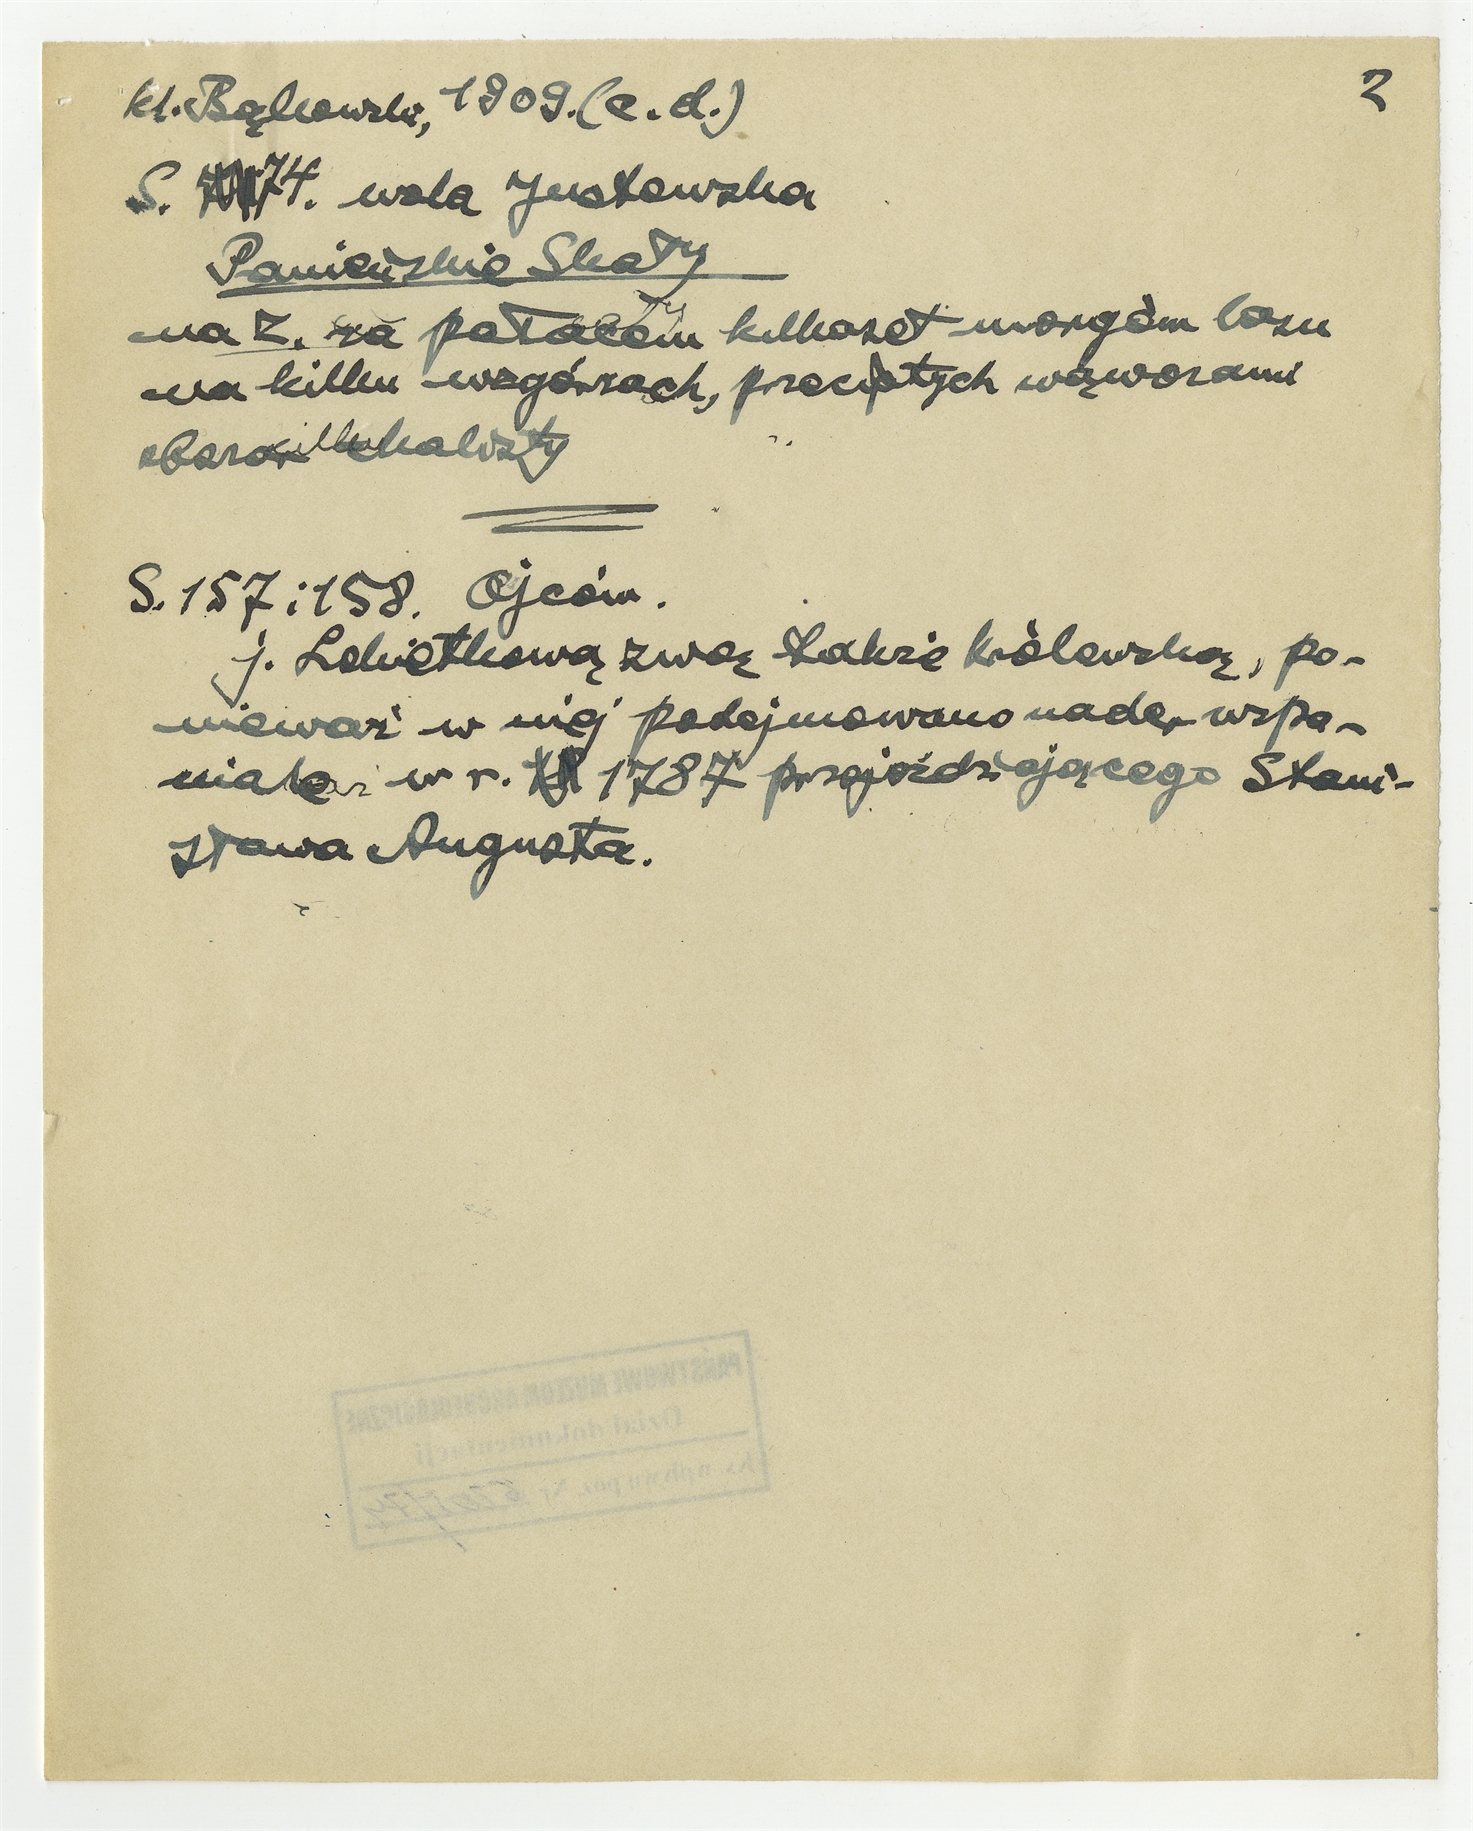 2
kl. Bąkowski, 1909. (c.d.)
S. 74. Wola Justowska
Panieńskie Skały
na z. za pałacem kilkaset morgów lasu
na kilku wzgórzach, przeciętych wąwozami
obszar skalisty
S. 157 i 158. Ojców.
j. Łokietkową zwą także królewską, po-
nieważ w niej podejmowano nader wspa-
niale w r. 1787 przejeżdżającego Stani-
sława Augusta.
PAŃSTWOWE MUZEUM ARCHEOLOGICZNE
Dział dokumentacji
ks. wpływu poz. Nr